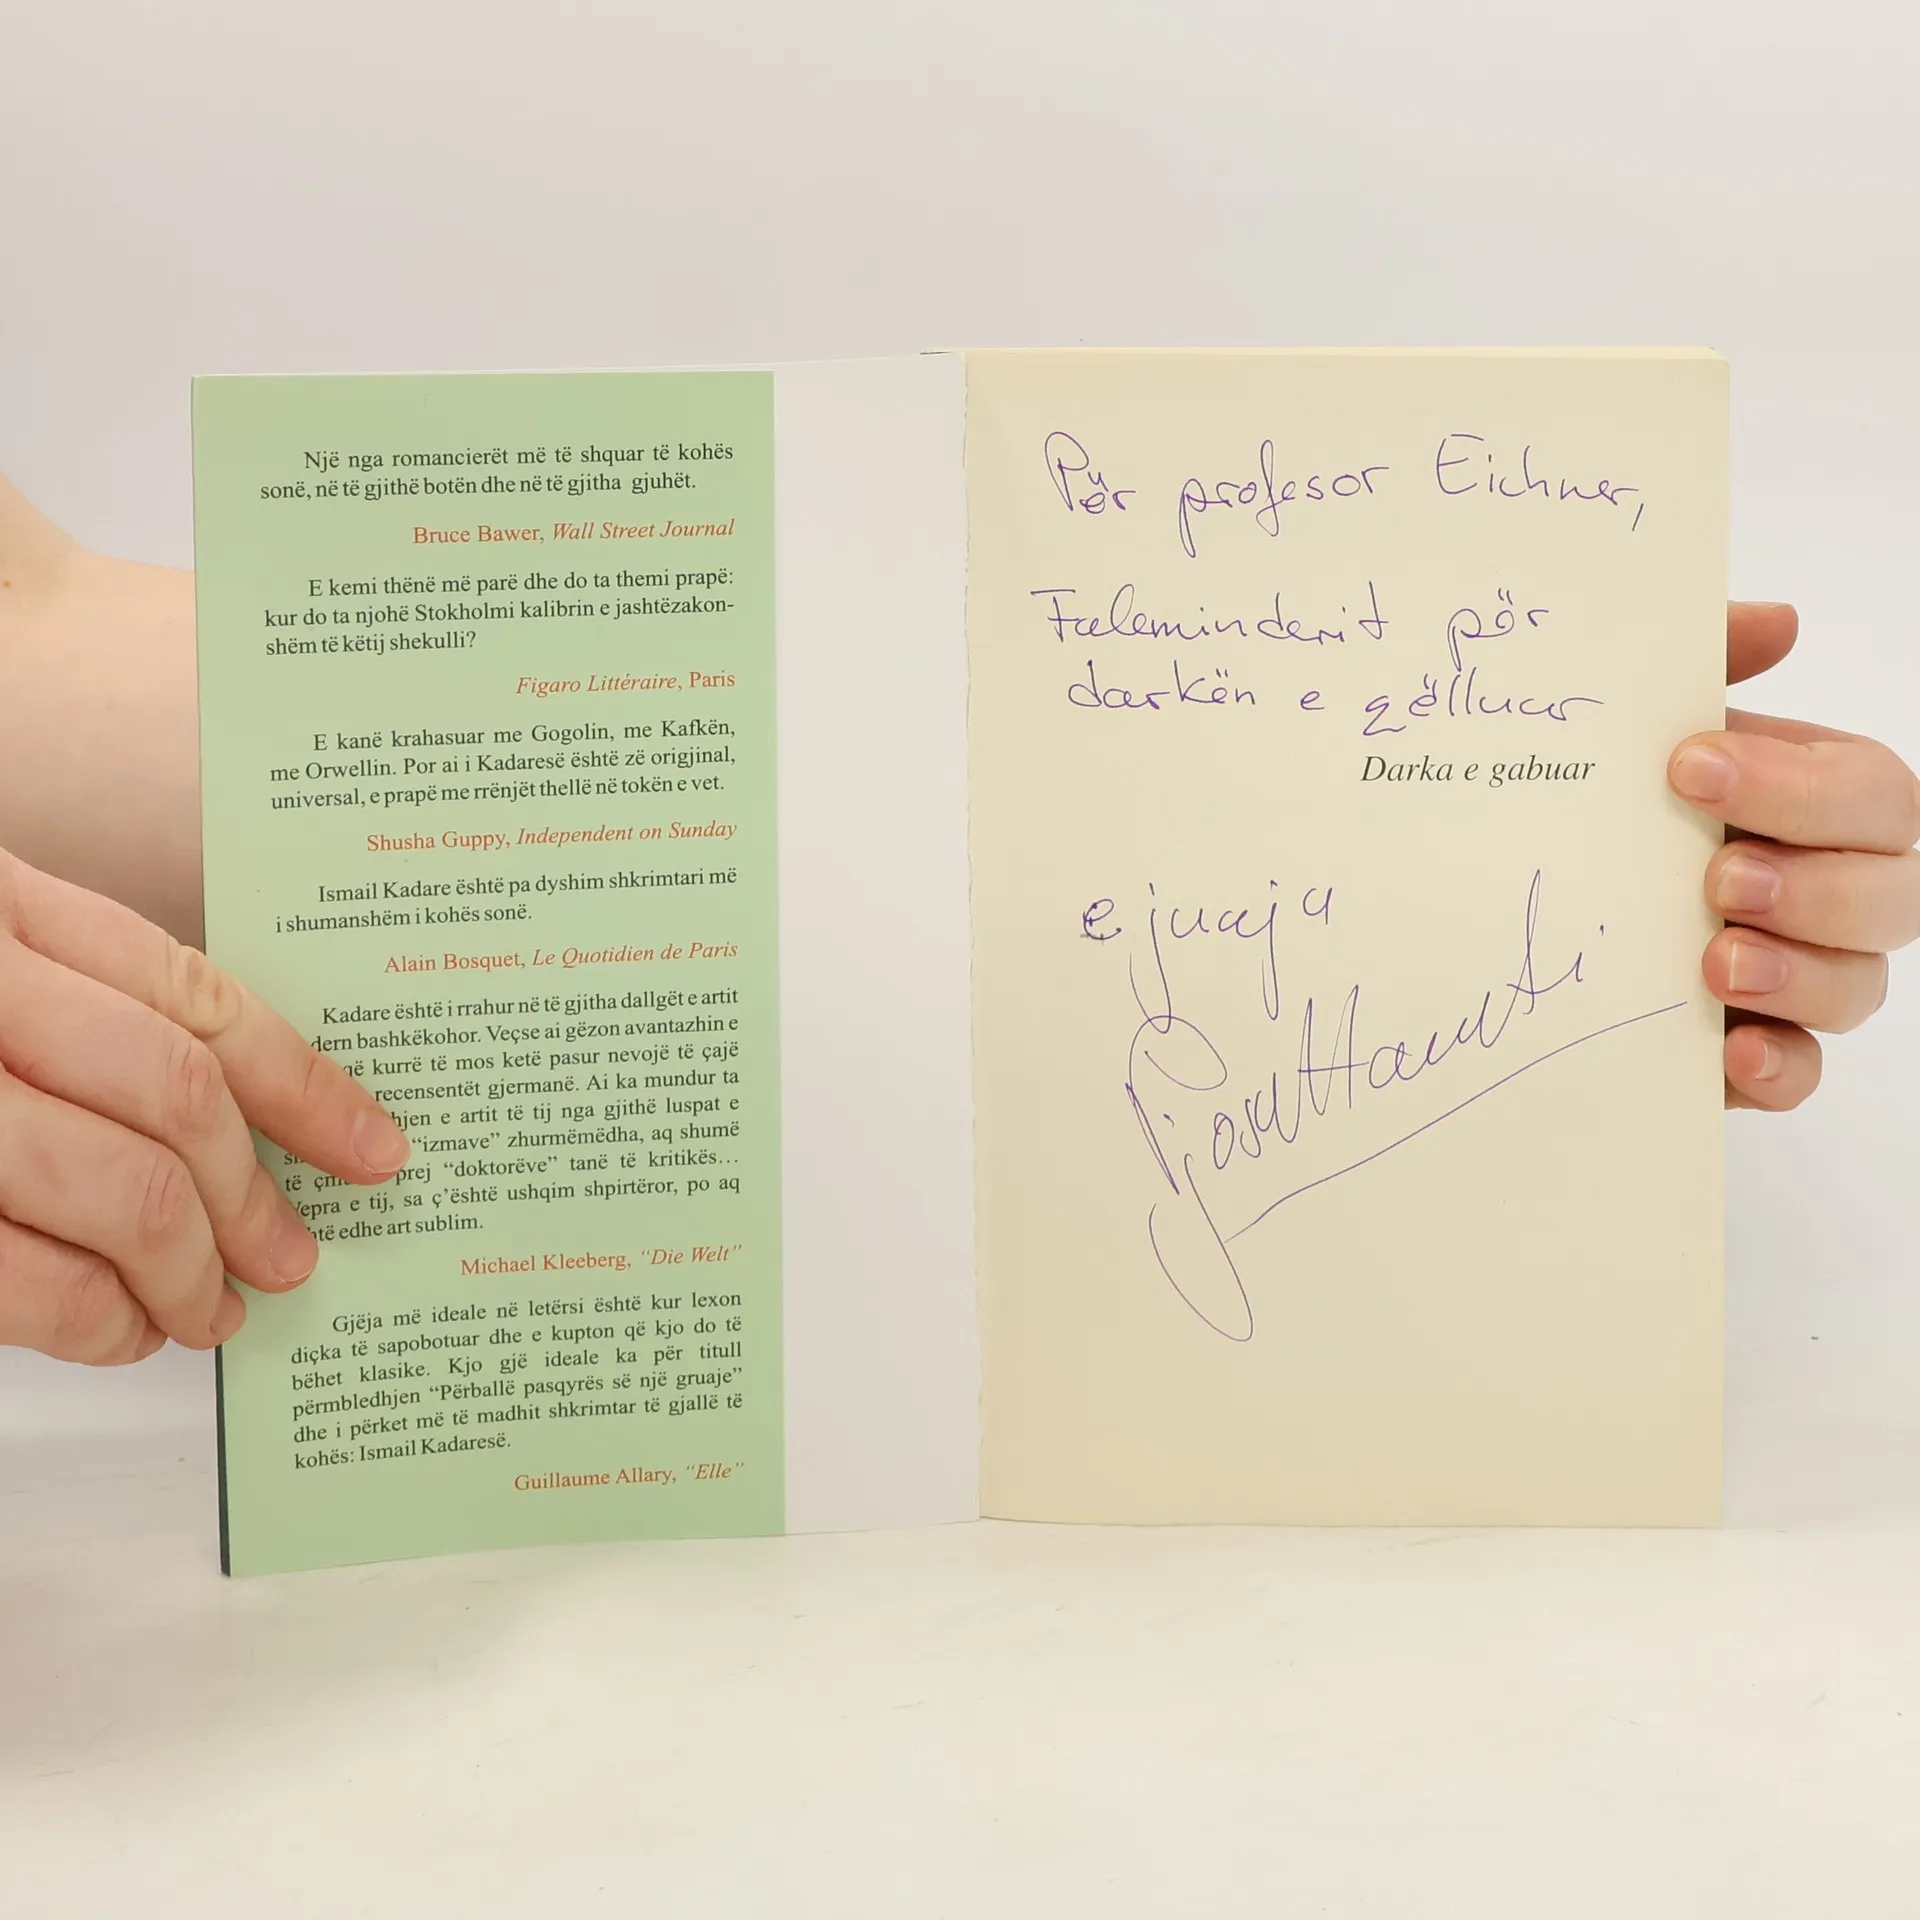 Një nga romancierët më të shquar të kohës
sonë, në të gjithë botën dhe në të gjitha gjuhët.
Bruce Bawer, Wall Street Journal
E kemi thënë më parë dhe do ta themi prapë:
kur do ta njohë Stokholmi kalibrin e jashtëzakon-
shëm të këtij shekulli?
Figaro Littéraire, Paris
E kanë krahasuar me Gogolin, me Kafkën,
me Orwellin. Por ai i Kadaresë është zë origjinal,
universal, e prapë me rrënjët thellë në tokën e vet.
Shusha Guppy, Independent on Sunday
Ismail Kadare është pa dyshim shkrimtari më
i shumanshëm i kohës sonë.
Alain Bosquet, Le Quotidien de Paris
Kadare është i rrahur në të gjitha dallgët e artit
dern bashkëkohor. Veçse ai gëzon avantazhin e
që kurrë të mos ketë pasur nevojë të çajë
recensentët gjermanë. Ai ka mundur ta
hjen e artit të tij nga gjithë luspat e
“izmave” zhurmëmëdha, aq shumë
të prej “doktorëve” tanë të kritikës…
Vepra e tij, sa ç’është ushqim shpirtëror, po aq
htë edhe art sublim.
Michael Kleeberg, “Die Welt”
Gjëja më ideale në letërsi është kur lexon
diçka të sapobotuar dhe e kupton që kjo do të
bëhet klasike. Kjo gjë ideale ka për titull
përmbledhjen “Përballë pasqyrës së një gruaje”
dhe i përket më të madhit shkrimtar të gjallë të
kohës: Ismail Kadaresë.
Guillaume Allary, “Elle”
Për profesor Eichner,
Faleminderit për
darkën e qëlluar
Darka e gabuar
e juaja